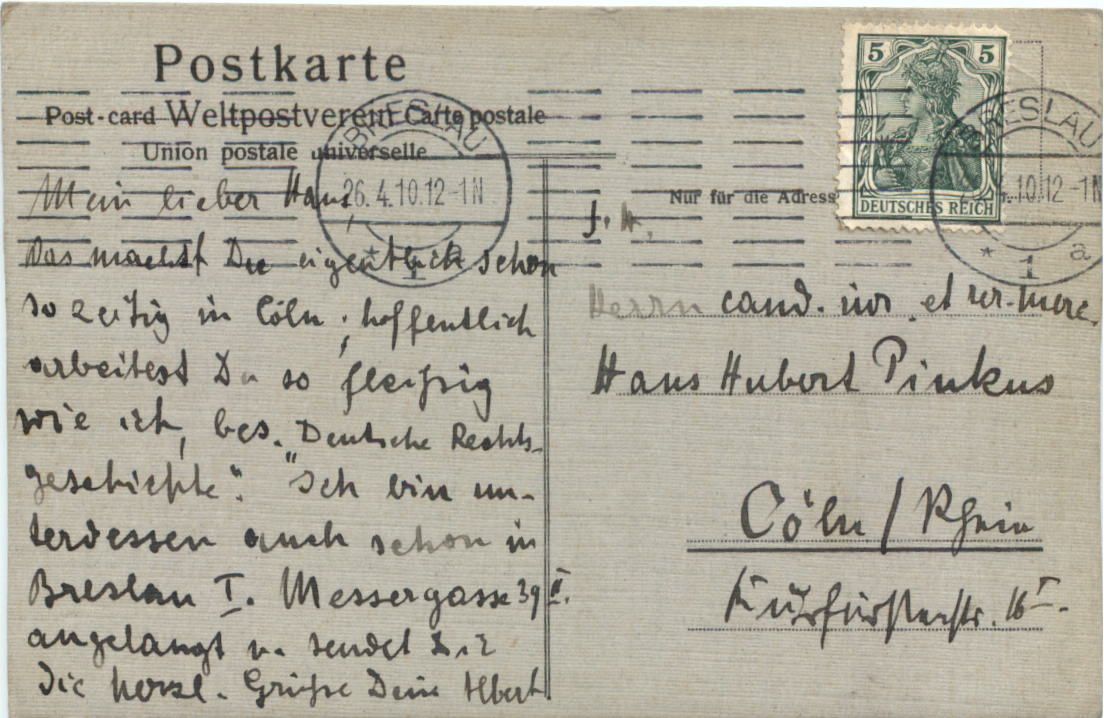 Postkarte
Post-card Weltpostverein Carte postale
Union postale universelle
Nur für die Adresse
5 5
DEUTSCHES REICH
BRESLAU
26.4.10.12-1N
* 1
BRESLAU
4.10.12-1N
* 1 a
Mein lieber Hans,
Was machst Du eigentlich schon
so zeitig in Cöln, hoffentlich
arbeitest Du so fleißig
wie ich, bes. "Deutsche Rechts-
geschichte". Ich bin un-
terdessen auch schon in
Breslau I. Messergasse 39 II.
angelangt u. sendet Dir
die herzl. Grüße Dein Albert
Herrn cand. iur. et rer. merc.
Hans Hubert Pinkus
Cöln / Rhein
Kurfürstenstr. 16 I.